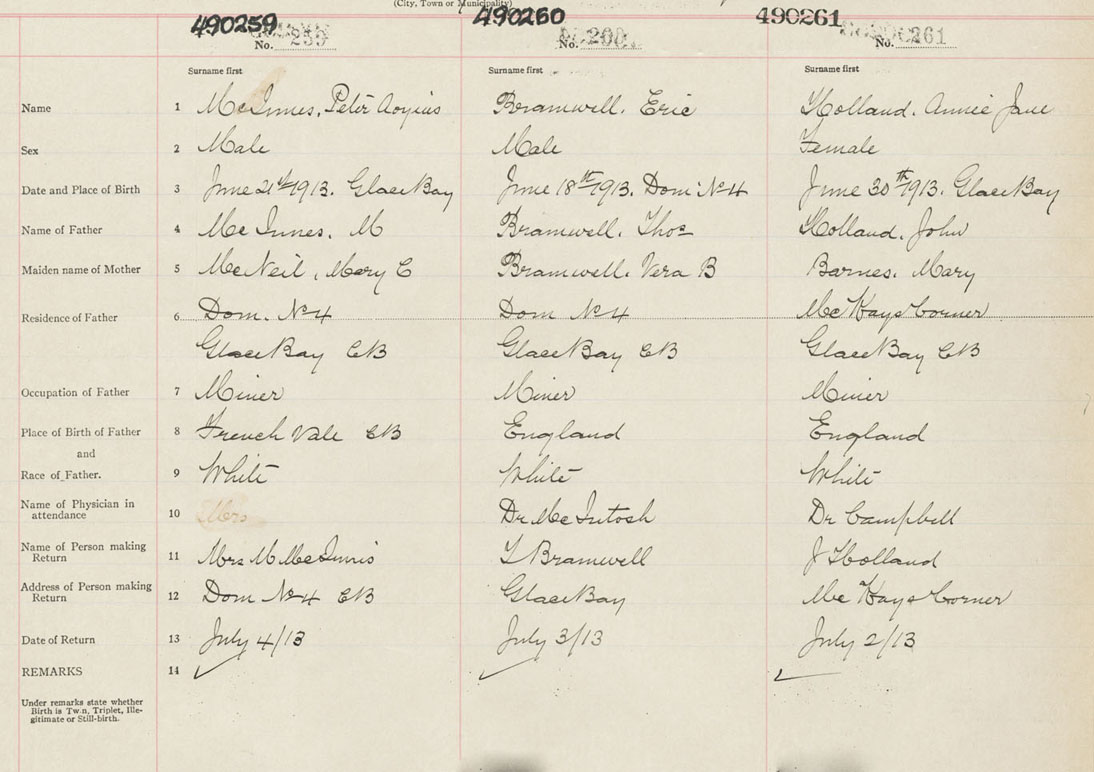 (City, Town or Municipality)
490259 490260 490261
No. 259 No. 260 No. 261
Surname first Surname first Surname first
Name 1 McInnes, Peter Aoyius Bramwell. Eric Holland. Annie Jane
Sex 2 Male Male Female
Date and Place of Birth 3 June 21st 1913. Glace Bay June 18th 1913. Dom. No 4 June 30th 1913. Glace Bay
Name of Father 4 McInnes. M Bramwell. Thos Holland. John
Maiden name of Mother 5 McNeil, Mary C Bramwell. Vera B Barnes. Mary
Residence of Father 6 Dom. No 4 Dom No 4 McKays Corner
Glace Bay CB Glace Bay CB Glace Bay CB
Occupation of Father 7 Miner Miner Miner
Place of Birth of Father 8 French Vale CB England England
and
Race of Father. 9 White White White
Name of Physician in
attendance 10 Mrs Dr McIntosh Dr Campbell
Name of Person making
Return 11 Mrs M McInnis T Bramwell J Holland
Address of Person making
Return 12 Dom No 4 CB Glace Bay McKays Corner
Date of Return 13 July 4/13 July 3/13 July 2/13
REMARKS 14
Under remarks state whether
Birth is Twin, Triplet, Ille-
gitimate or Still-birth.